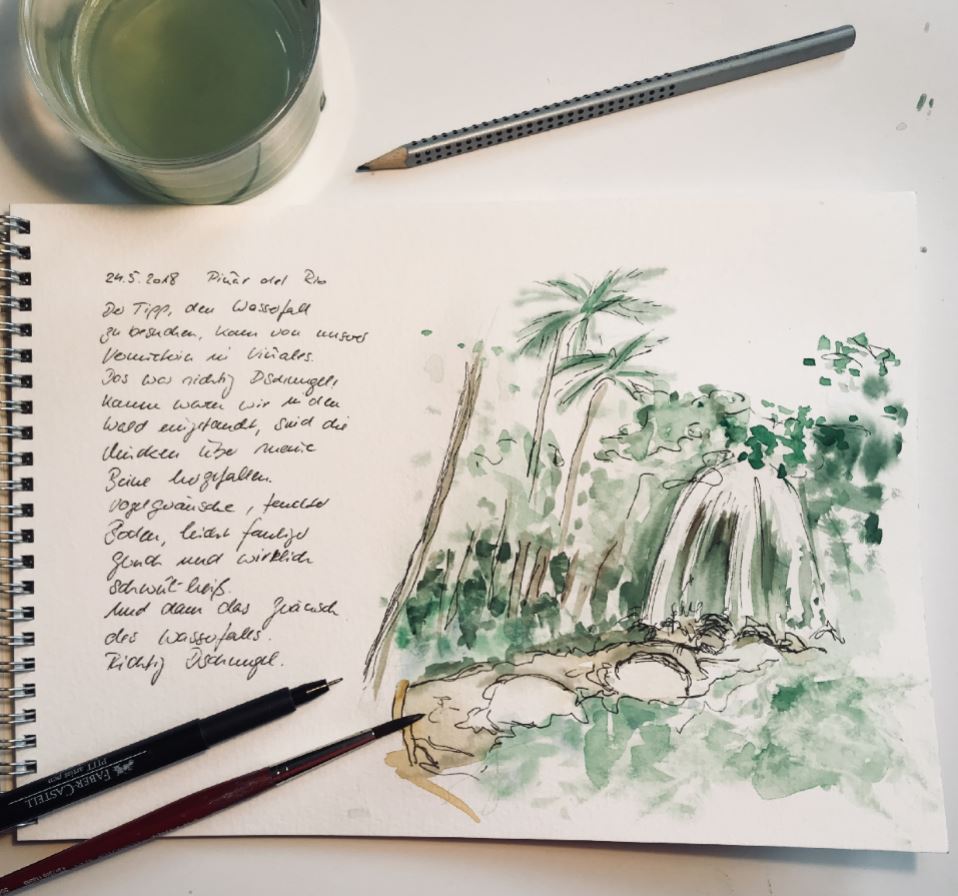 24.5.2018 Pinar del Rio
Der Tipp, den Wasserfall
zu besuchen, kam von unserer
Vermieterin in Viñales.
Das war richtig Dschungel,
kaum waren wir in den
Wald eingetaucht, sind die
Mücken über meine
Beine hergefallen.
Vogelgeräusche, feuchter
Boden, leicht fauliger
Geruch und wirklich
schwül-heiß.
Und dann das Geräusch
des Wasserfalles.
Richtig Dschungel.
FABER-CASTELL
PITT artist pen